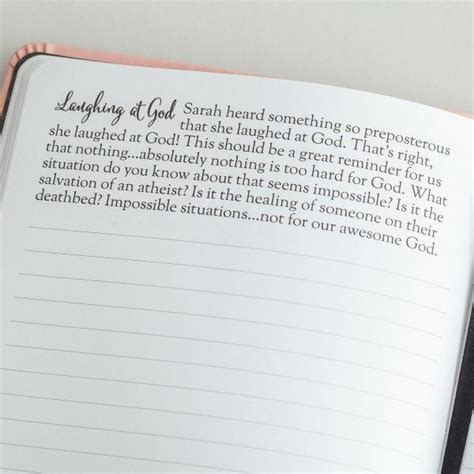 Laughing at God Sarah heard something so preposterous
that she laughed at God. That's right,
she laughed at God! This should be a great reminder for us
that nothing...absolutely nothing is too hard for God. What
situation do you know about that seems impossible? Is it the
salvation of an atheist? Is it the healing of someone on their
deathbed? Impossible situations...not for our awesome God.